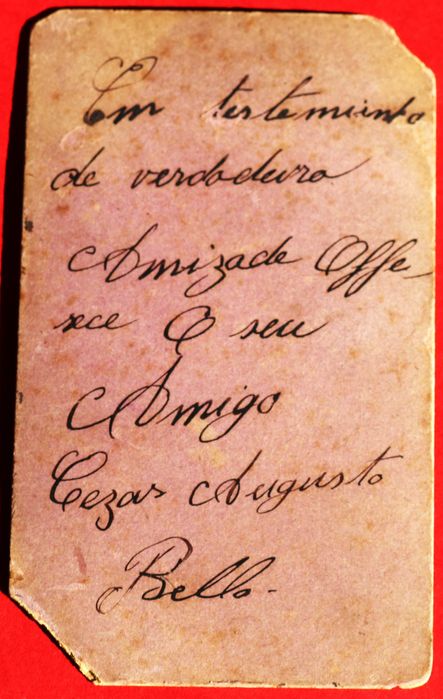 Em testemunho
de verdadeira
Amizade Offe_
rece O seu
Amigo
Cezar Augusto
Bello.